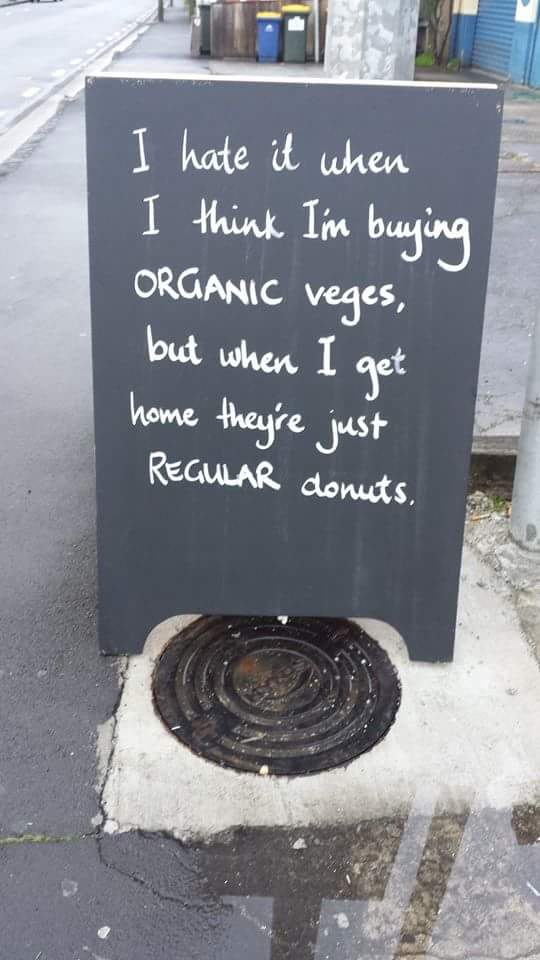 I hate it when
I think I'm buying
ORGANIC veges,
but when I get
home they're just
REGULAR donuts.